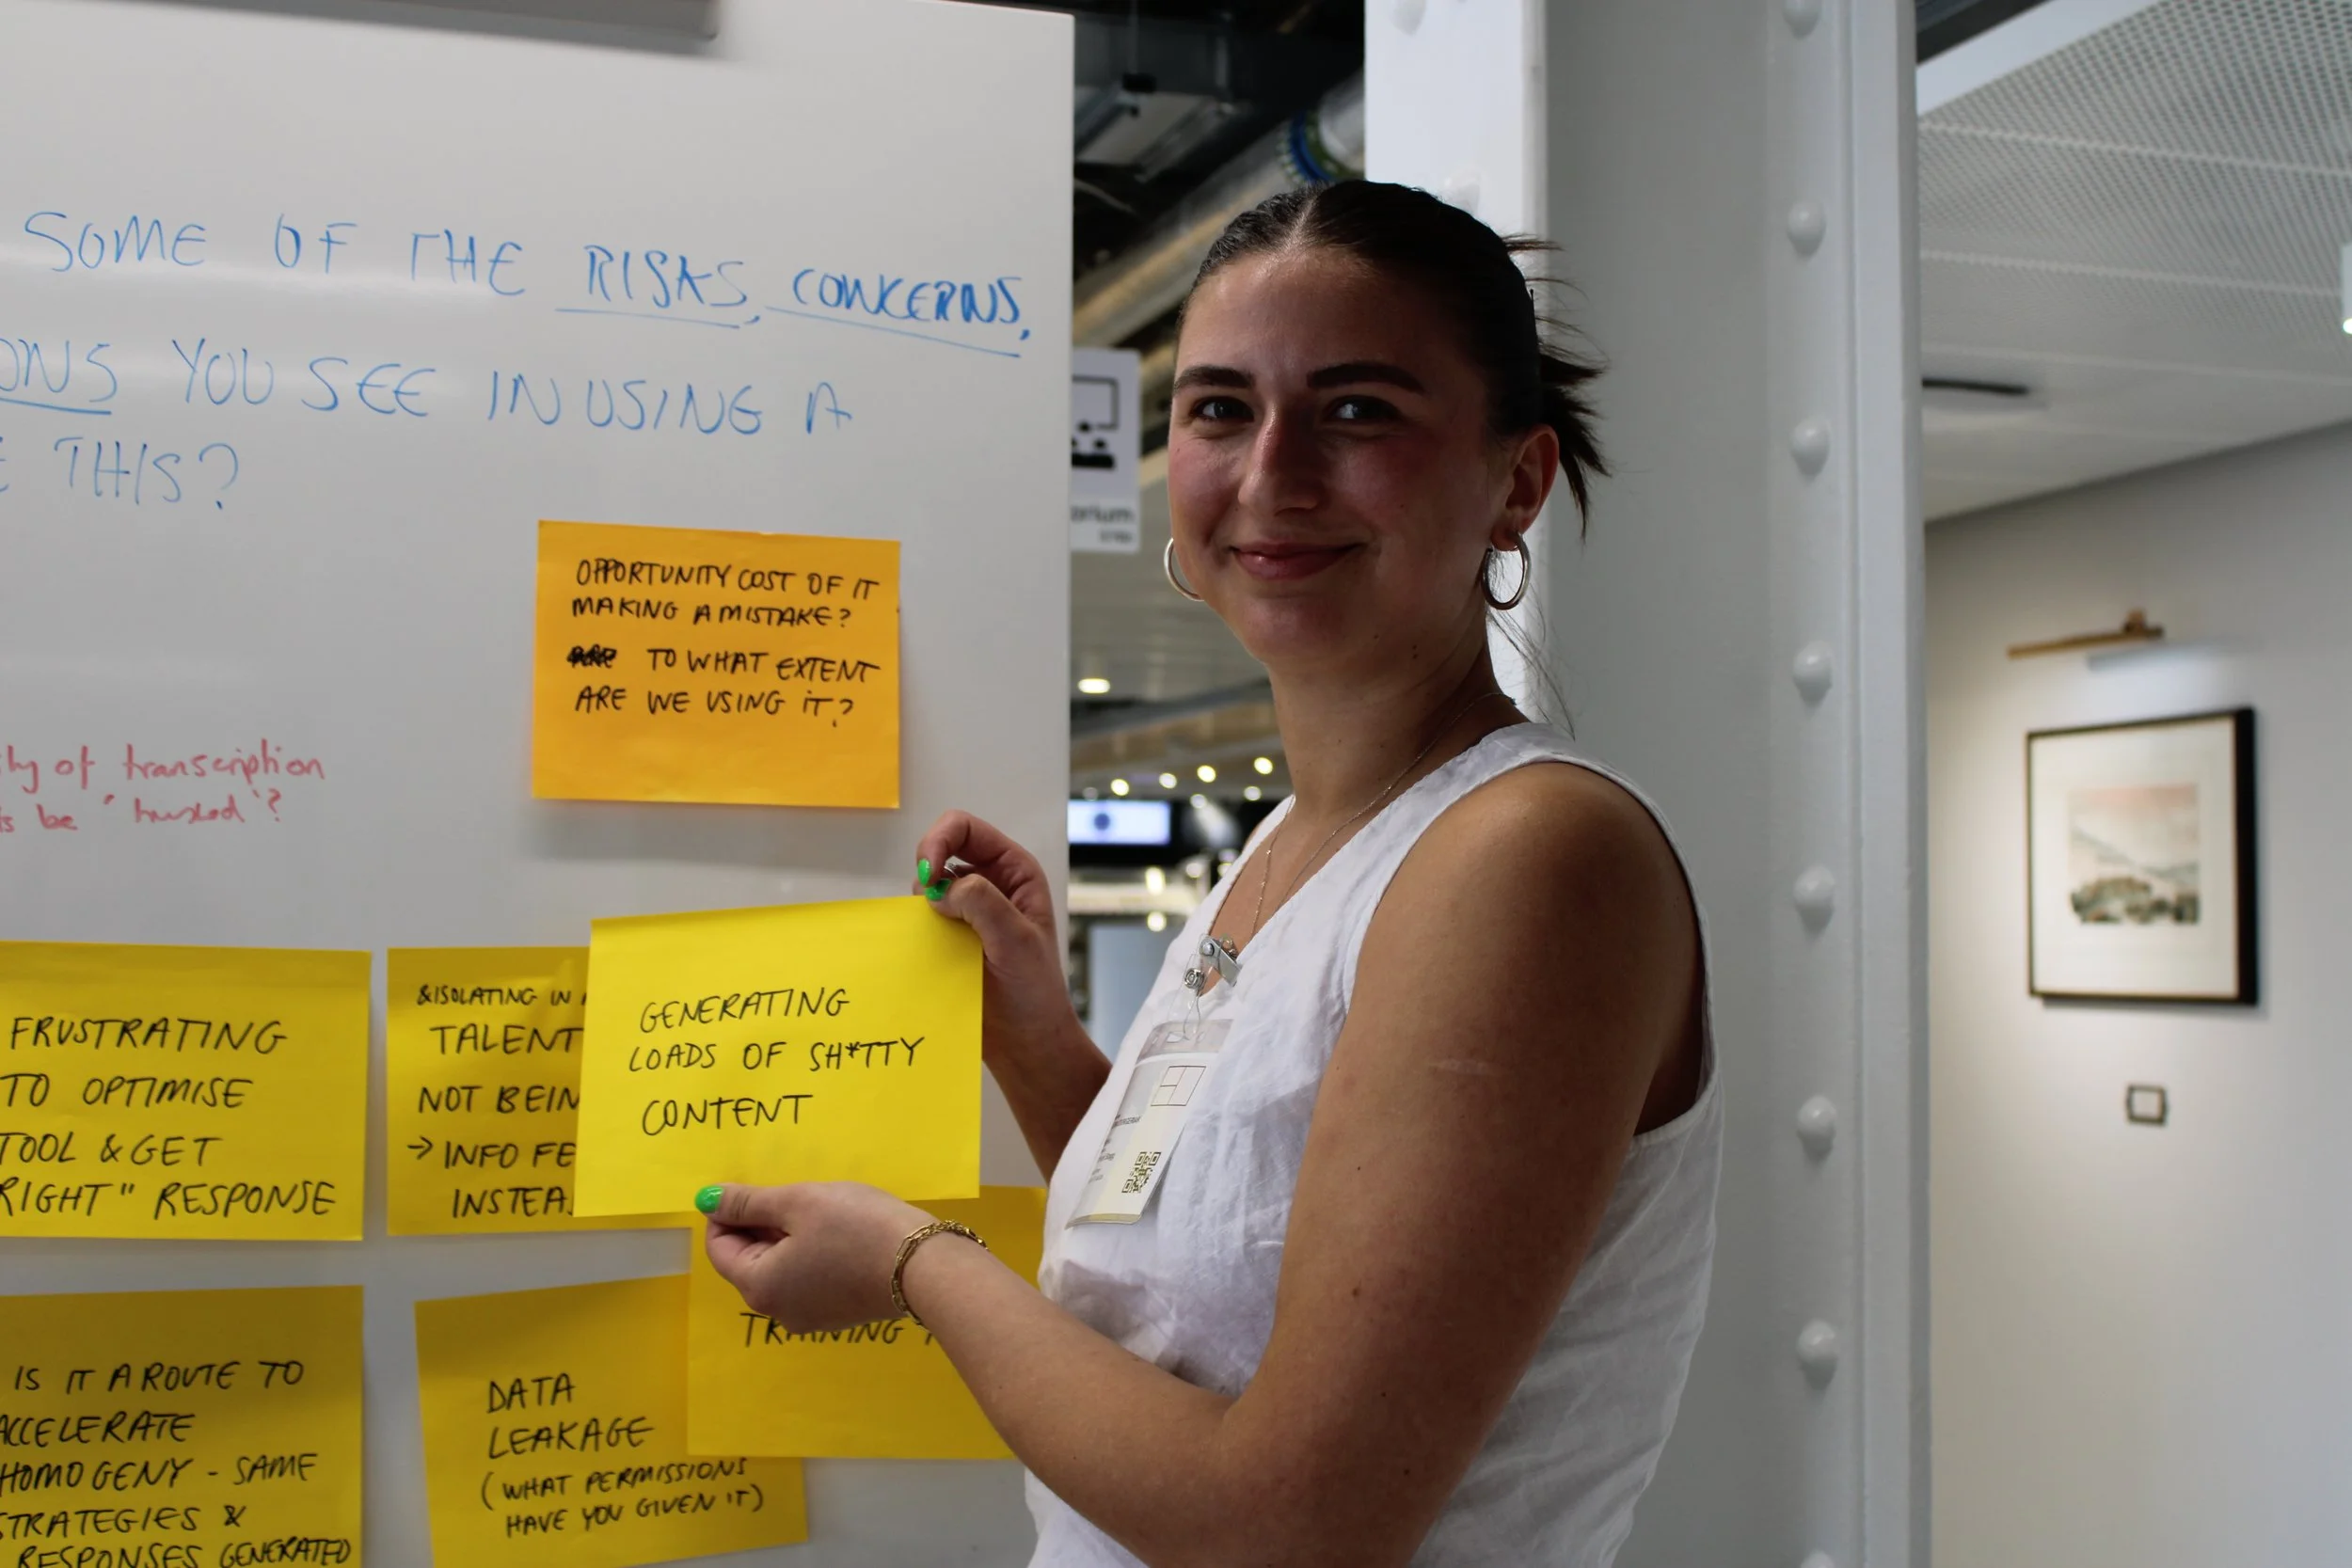 SOME OF THE RISKS, CONCERNS,
ONS YOU SEE IN USING A
E THIS?
OPPORTUNITY COST OF IT
MAKING A MISTAKE?
TO WHAT EXTENT
ARE WE USING IT?
of transcription
be 'trusted'?
orium
FRUSTRATING
TO OPTIMISE
TOOL & GET
RIGHT" RESPONSE
& ISOLATING IN
TALENT
NOT BEIN
→ INFO FE
INSTEA
GENERATING
LOADS OF SH*TTY
CONTENT
TRAINING
IS IT A ROUTE TO
ACCELERATE
HOMOGENY - SAME
STRATEGIES &
RESPONSES GENERATED
DATA
LEAKAGE
(WHAT PERMISSIONS
HAVE YOU GIVEN IT)